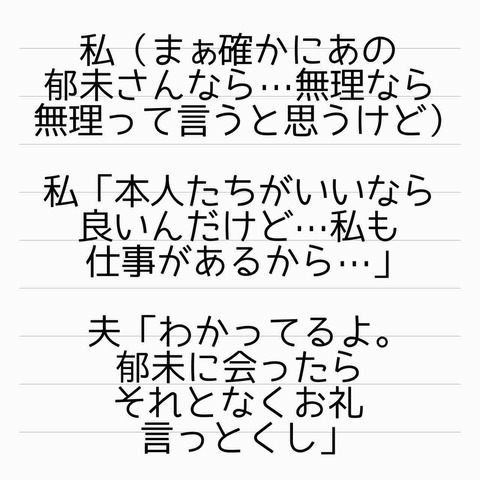 私（まぁ確かにあの
郁未さんなら…無理なら
無理って言うと思うけど）
私「本人たちがいいなら
良いんだけど…私も
仕事があるから…」
夫「わかってるよ。
郁未に会ったら
それとなくお礼
言っとくし」